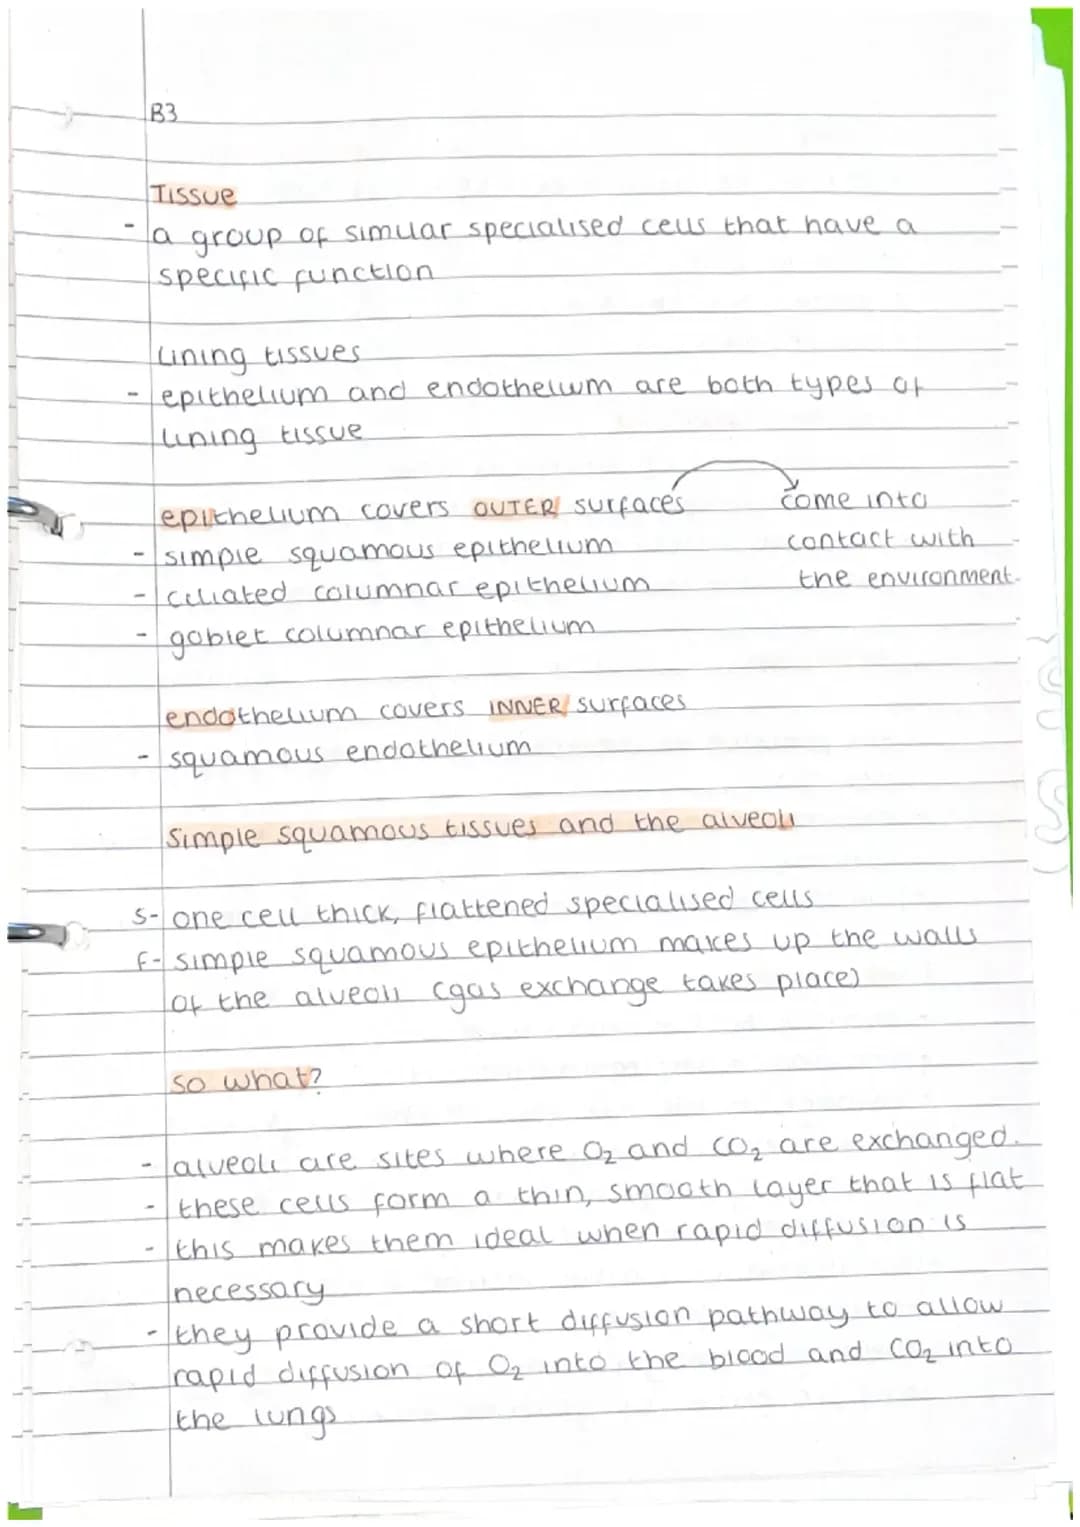 B3
Tissue
- a group of similar specialised cells that have a
specific function
Lining tissues
- epithelium and endothelium are both types of
lining tissue
epithelium covers OUTER surfaces
come into
contact with
the environment.
- simple squamous epithelium
- ciliated columnar epithelium
- goblet columnar epithelium
endothelium covers INNER surfaces
- squamous endothelium
Simple squamous tissues and the alveoli
S- one cell thick, flattened specialised cells
F- simple squamous epithelium makes up the walls
of the alveoli (gas exchange takes place)
so what?
- alveoli are sites where O₂ and CO₂ are exchanged.
- these cells form a thin, smooth layer that is flat
- this makes them ideal when rapid diffusion is
necessary
- they provide a short diffusion pathway to allow
rapid diffusion of O₂ into the blood and CO₂ into
the lungs